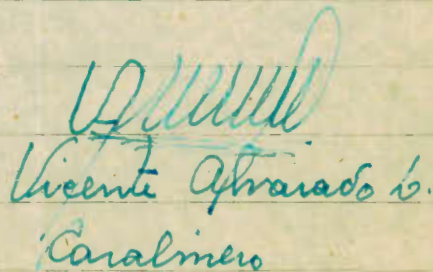 Vicente Alvarado L.
Carabinero